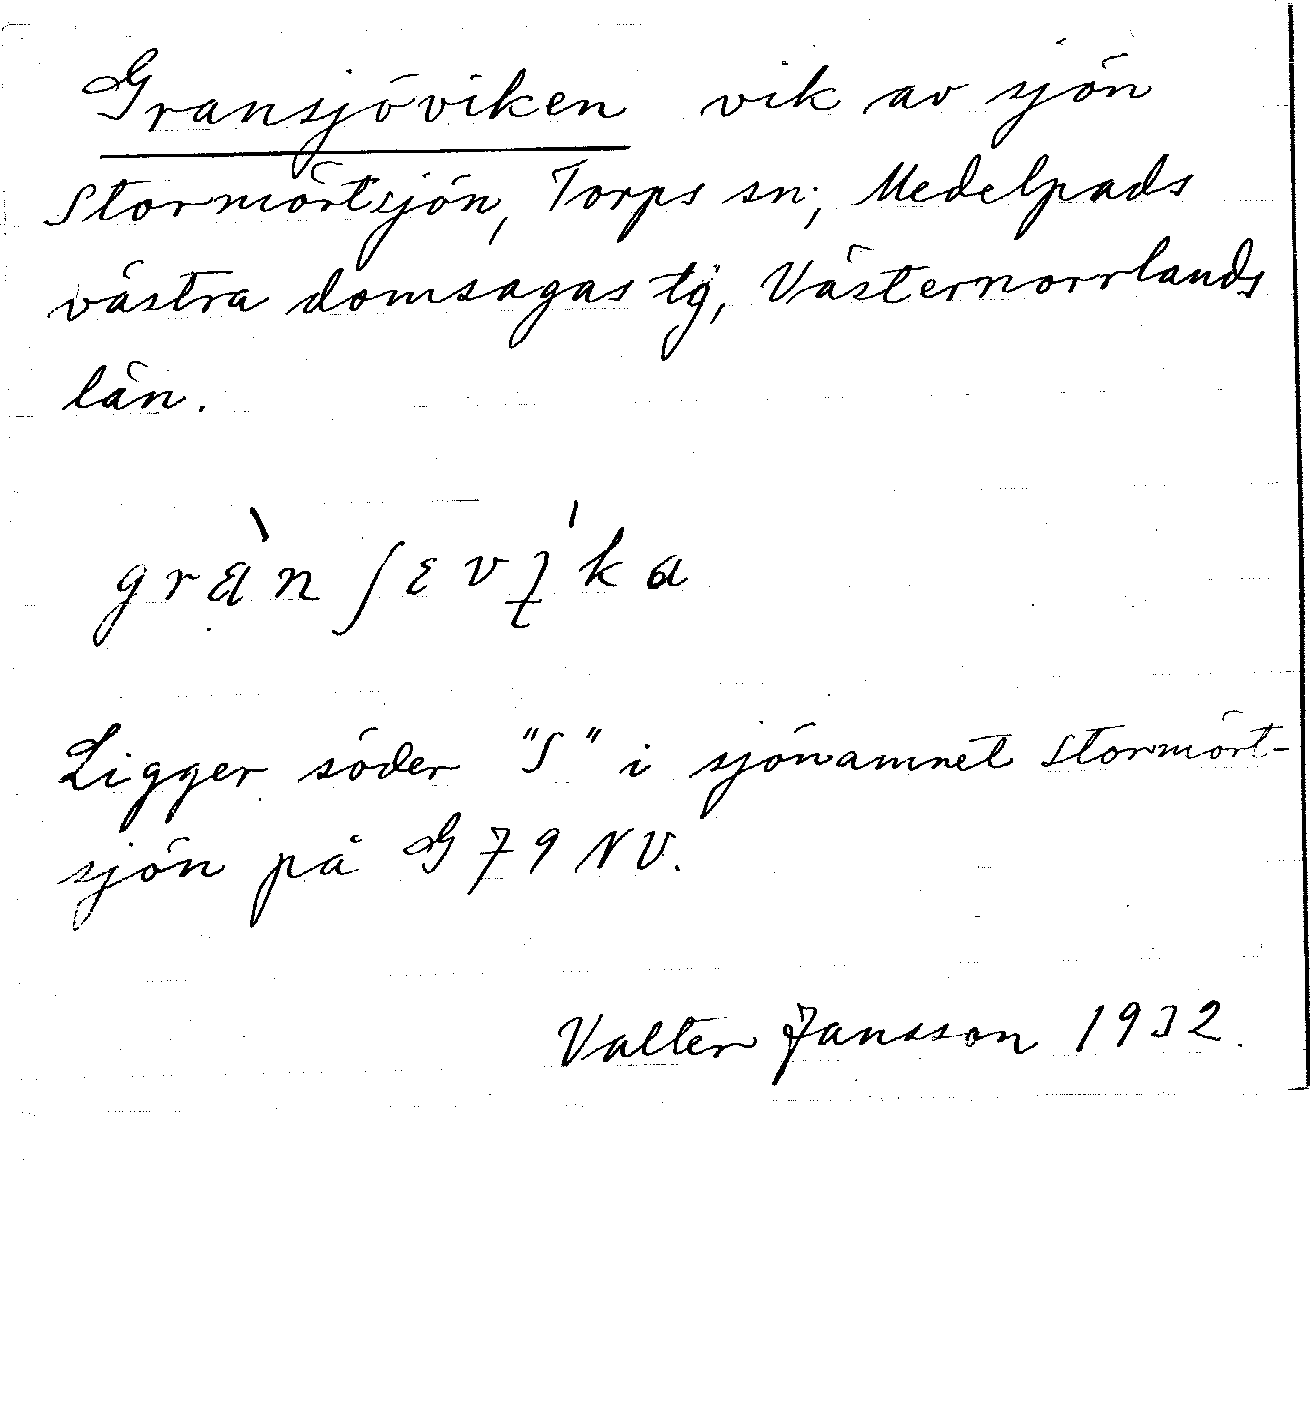 Gransjöviken vik av sjön
Stormörtsjön, Torps sn; Medelpads
västra domsagas tg, Västernorrlands
län.
Ligger söder "S" i sjönamnet Stormört-
sjön på G 79 NV.
Valter Jansson 1932.